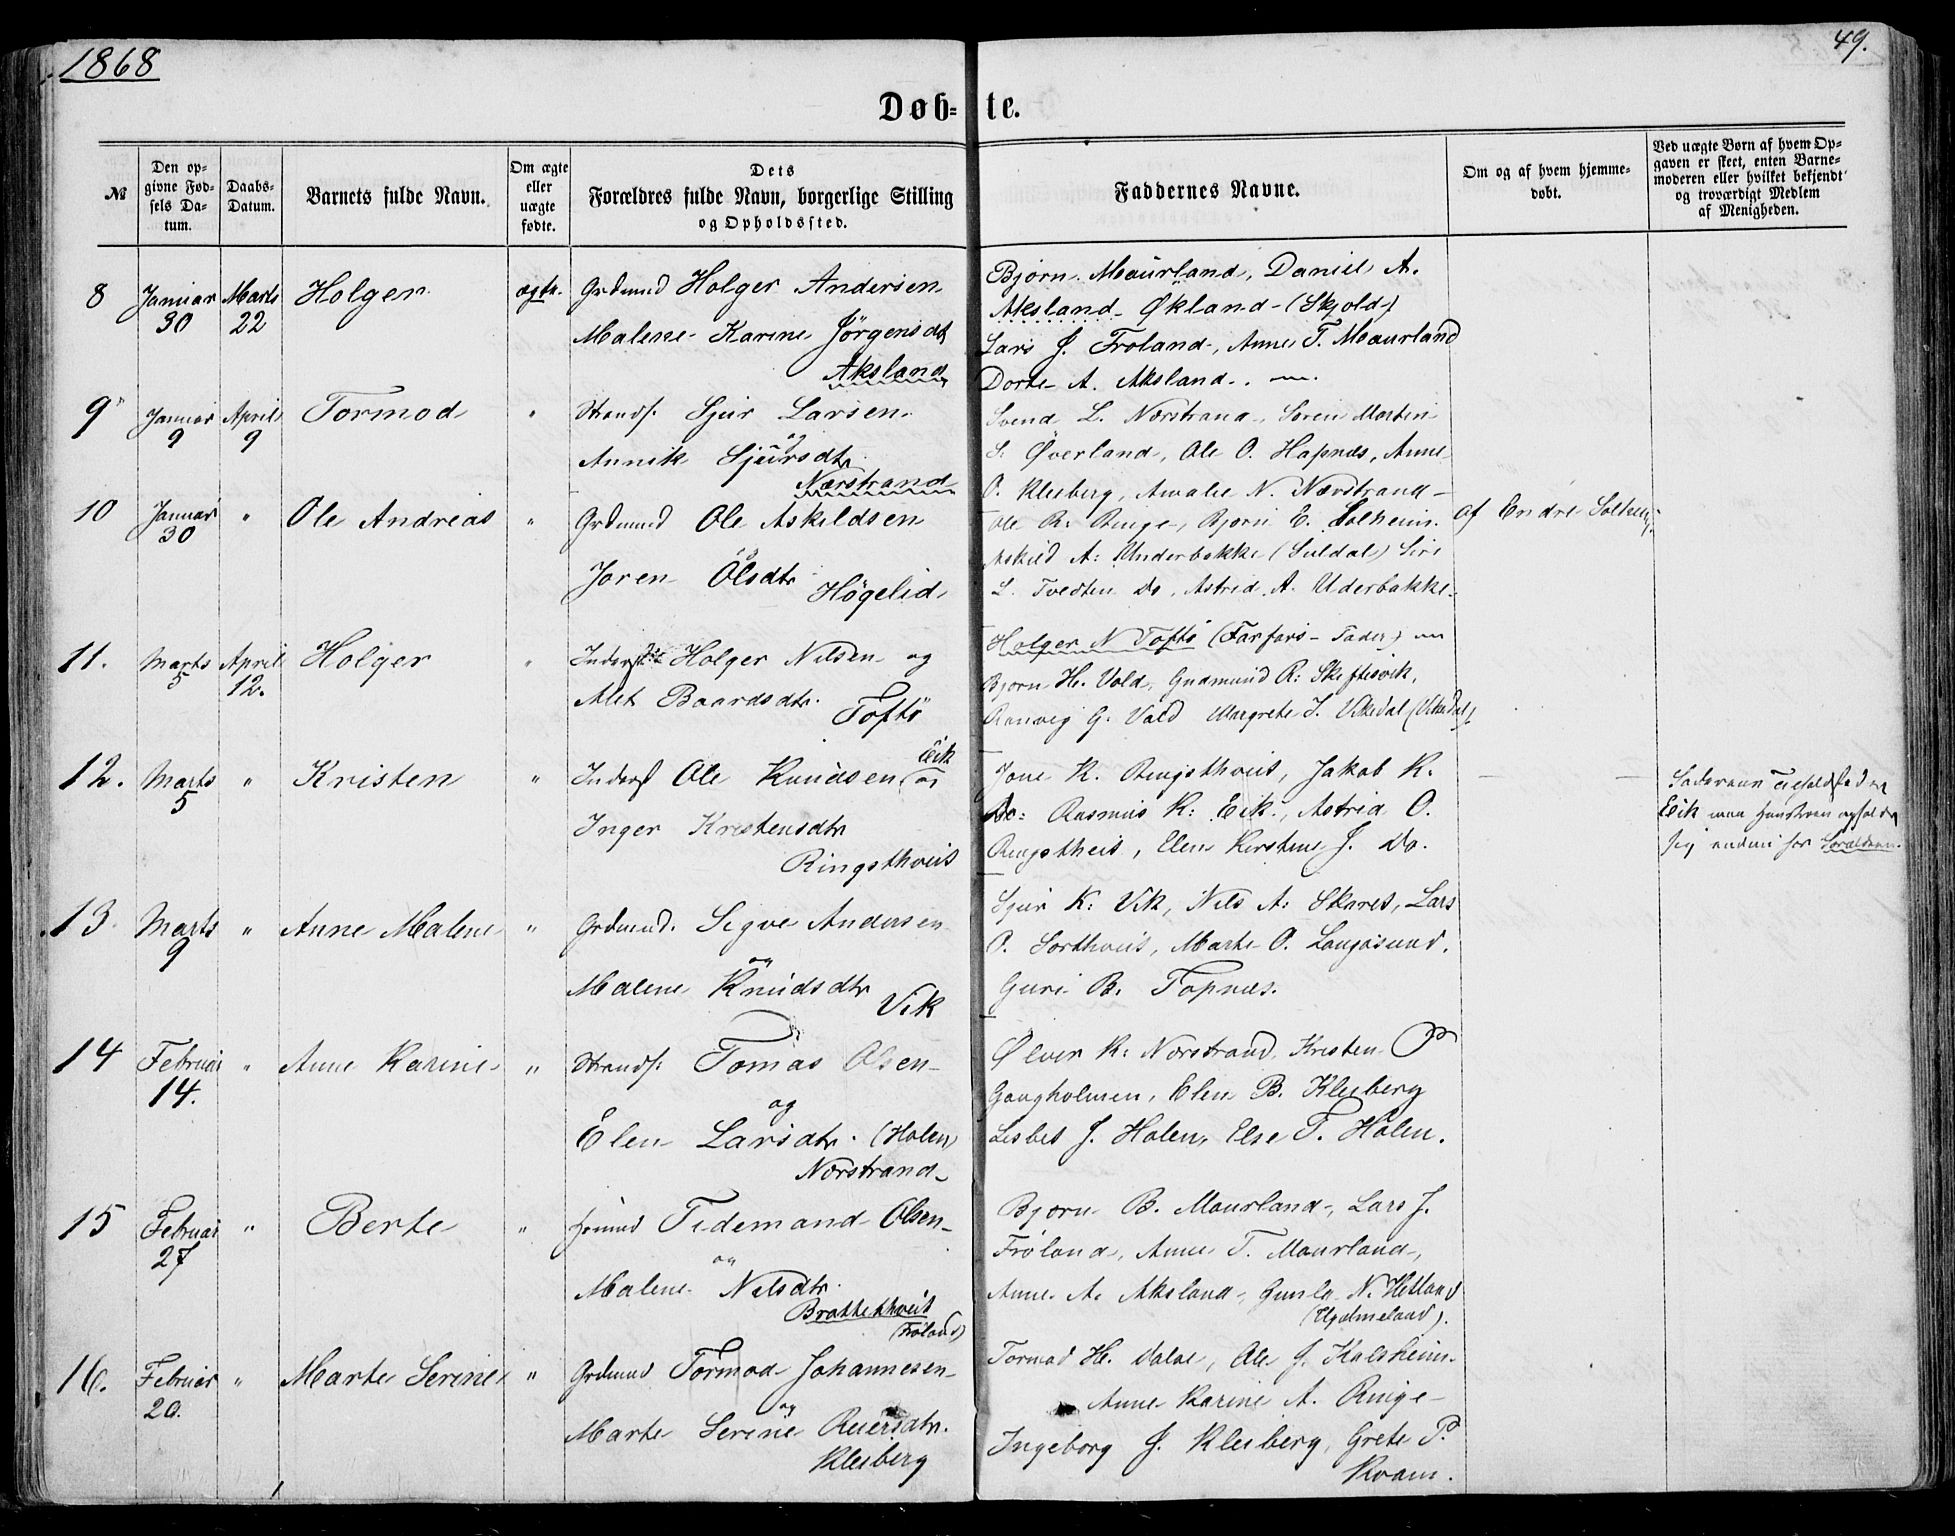 1868
49.
Døb= te.
№
Den op-
givne Fød-
sels Da-
tum.
Daabs-
Datum.
Barnets fulde Navn.
Om ægte
eller
uægte
fødte.
Dets
Forældres fulde Navn, borgerlige Stilling
og Opholdssted.
Faddernes Navne.
Om og af hvem hjemme-
døbt.
Ved uægte Børn af hvem Op-
gaven er skeet, enten Barne-
moderen eller hvilket bekjendt
og troværdigt Medlem
af Menigheden.
8 Januar 30 Marts 22 Holger ægte. Grdmnd Holger Andersen
Malene Karine Jörgensdt
Aksland
Bjørn Maurland, Daniel A.
Aksland Økland (Skjold)
Lars J. Froland, Anne T. Maurland
Dorte A. Aksland.
9 Januar 9 April 9 Tormod " Strands. Sjur Larsen
og
Annik Sjursdtr
Nærstrand
Svend L. Nærstrand, Søren Martin
S. Øverland, Ole O. Hapnæs, Anne
O. Kleiberg, Amalie N. Nærstrand
10 Januar 30 " Ole Andreas " Grdmnd Ole Askildsen
og
Joren Olsdtr Högelid
Ole R. Ringe, Bjørn E. Solheim.
Askild A: Underbakke (Suldal) Siri
L. Tvedten Do, Astrid A. Uderbakke
Af Endre Solheim
11. Marts 5 April 12. Holger " Inderst Holger Nilsen og
Alet Baardsdtr. Toftö
Holger N Toftö (Farfars Fader)
Bjørn H. Vold, Gudmund R: Skeftesvik,
Ranveig G. Vold Margrete I. Vikedal (Vikedal)
12. Marts 5 " Kristen " Inderst Ole Knudsen Eik og
Inger Kristensdtr
Ringsthveit
Jone K. Ringsthveit, Jakob K.
Do: Rasmus K: Eik, Astrid O.
Ringstheit, Elen Kirstine J. Do.
Eik
13. Marts 9 " Anne Malene " Grdmnd. Sigve Andersen
og
Malene Knudsdtr Vik
Sjur K: Vik, Nils A: Skaret, Lars
O. Sorthveit, Marte O. Langåsund.
Guri B. Topnæs.
14 Februar 14. " Anne Karine " Strands: Tomas Olsen
og
Elen Larsdtr. (Holen)
Nærstrand
Ølver K: Nærstrand, Kristen P
Gangholmen, Elen B. Kleiberg
Lisbet J. Holen, Else T. Holen.
15 Februar 27 " Berte " Tidemand Olsen
og
Malene Nilsdtr.
Brattethveit
(Frøland)
Bjørn B. Maurland, Lars J.
Frøland, Anne T. Maurland,
Anne A. Aksland, Gunle N. Hetland
(Hjelmeland).
16. Februar 20. " Marte Serine " Grdmnd Tormod Johannesen
og
Marte Serine Reiersdtr.
Kleiberg
Tormod H. Dalve, Ole J. Kalsheim
Anne Karine A. Ringe
Ingeborg J. Kleiberg, Grete P.
Kvam.